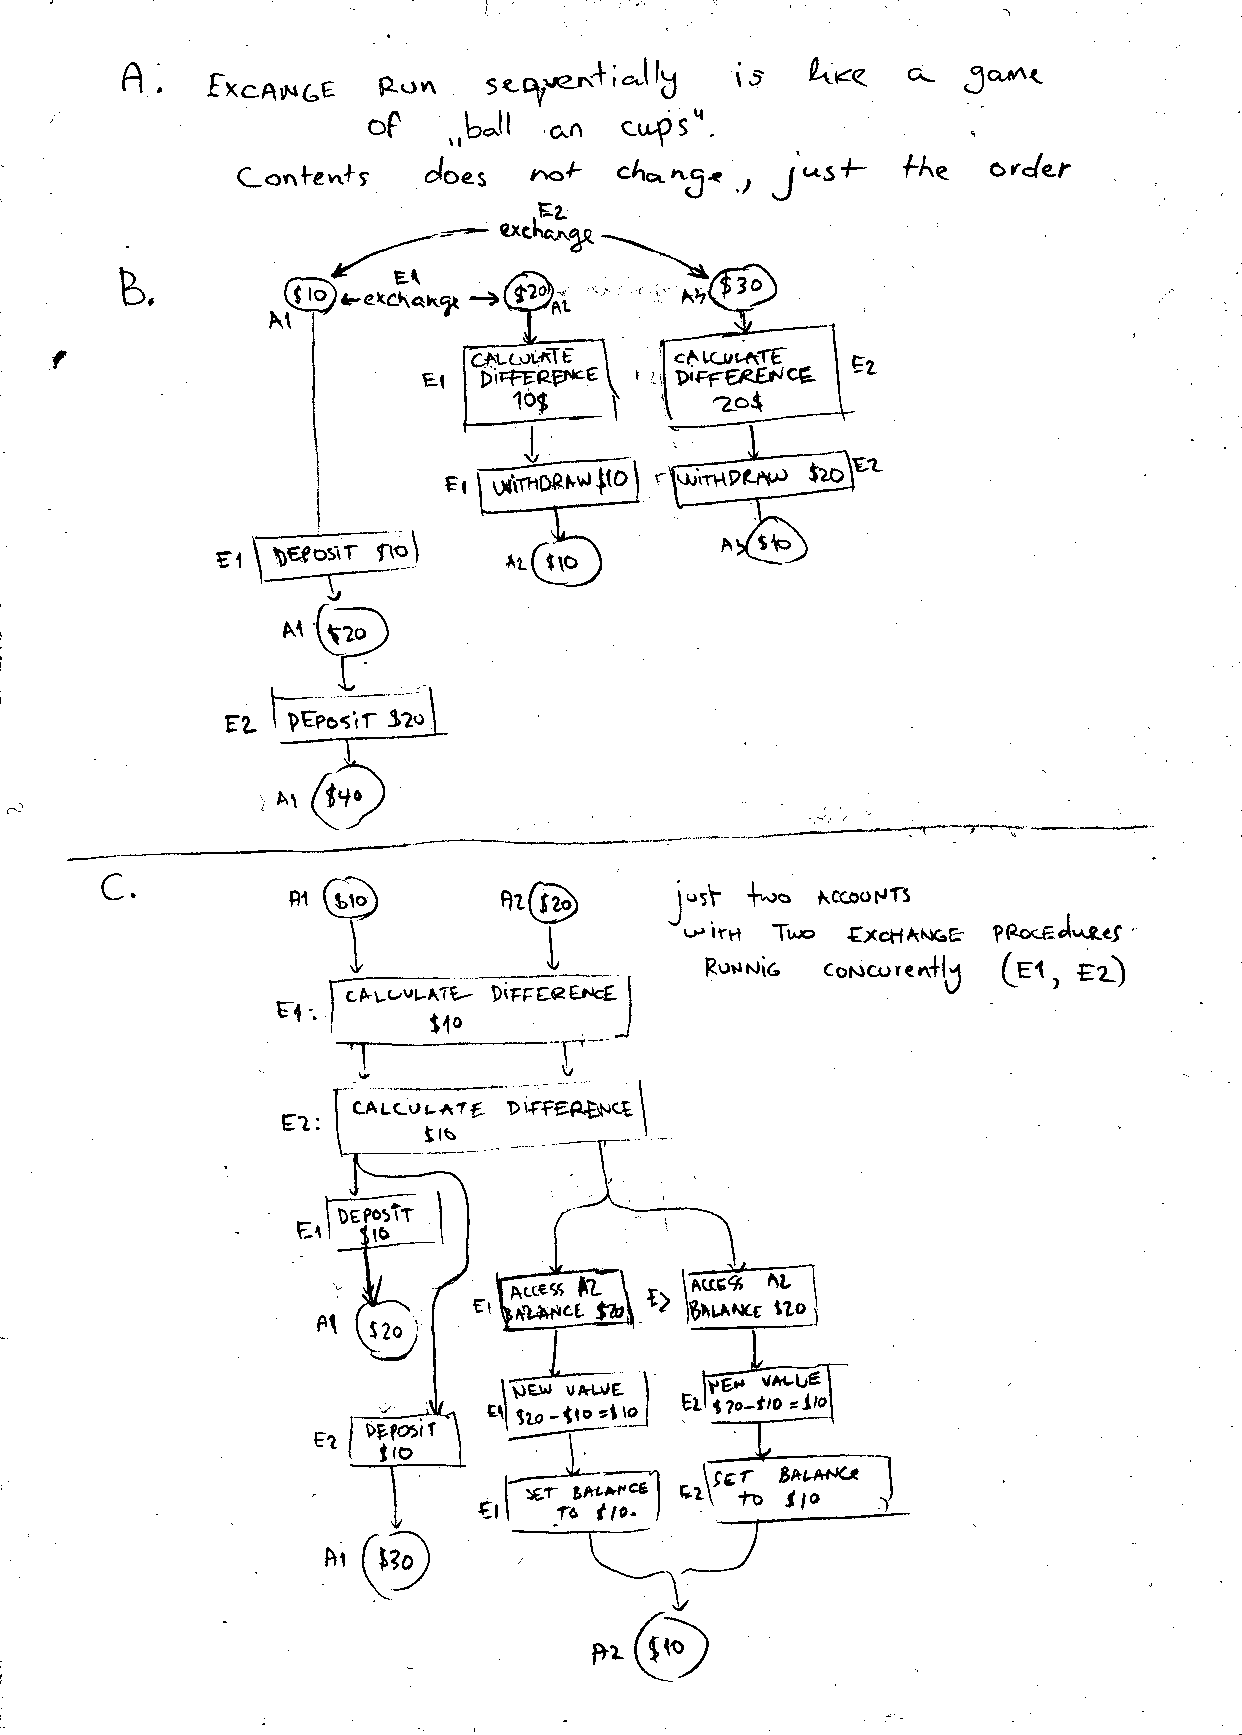 A. EXCANGE RUN sequentially is like a game
of „ball an cups".
Contents does not change, just the order
B.
E2
exchange
E1
$10 exchange $20 A2 A3 $30
A1
E1 CALCULATE DIFFERENCE 10$
CALCULATE DIFFERENCE 20$ E2
E1 WITHDRAW $10
WITHDRAW $20 E2
A2 $10
A3 $10
E1 DEPOSIT $10
A1 $20
E2 DEPOSIT $20
A1 $40
C.
A1 $10 A2 $20
just two ACCOUNTS
WITH TWO EXCHANGE PROCEdURES
RUNNIG CONCURENTLY (E1, E2)
E1: CALCULATE DIFFERENCE
$10
E2: CALCULATE DIFFERENCE
$10
E1 DEPOSIT
$10
A1 $20
E2 DEPOSIT
$10
A1 $30
E1 ACCESS A2
BALANCE $20
E1 NEW VALUE
$20-$10=$10
E1 SET BALANCE
TO $10.
E2 ACCESS A2
BALANCE $20
E2 NEW VALUE
$20-$10=$10
E2 SET BALANCE
TO $10
A2 $10